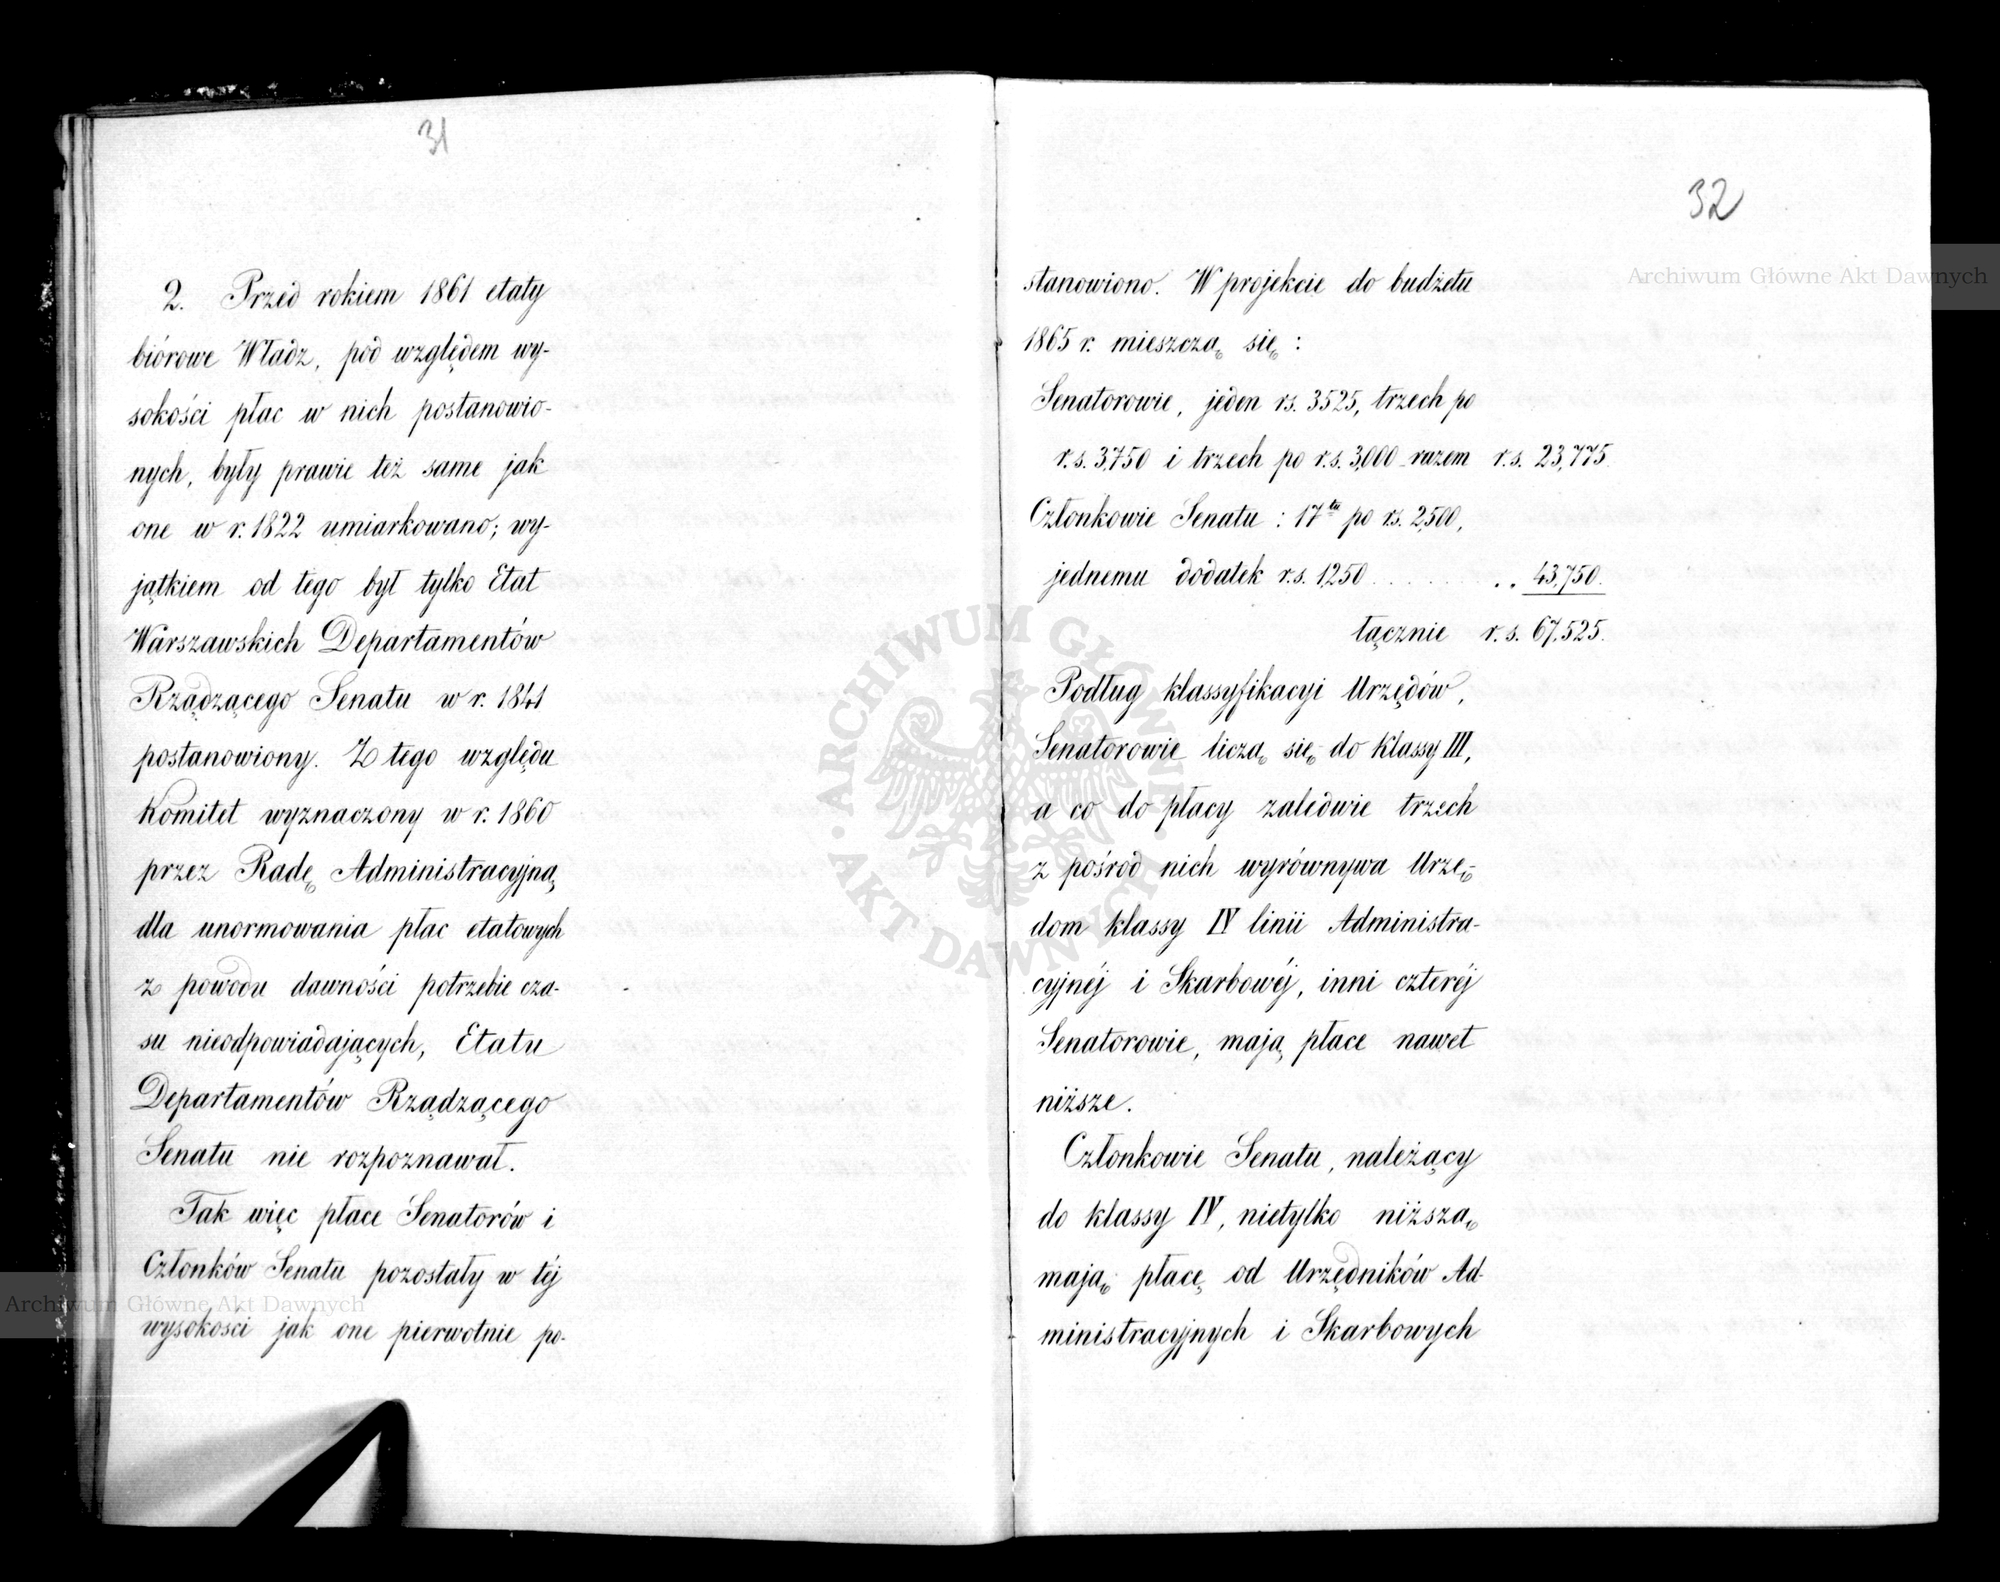 31
2. Przed rokiem 1861 etaty
biórowe Władz, pod względem wy-
sokości płac w nich postanowio-
nych, były prawie też same jak
one w r. 1822 umiarkowano; wy-
jątkiem od tego był tylko Etat
Warszawskich Departamentów
Rządzącego Senatu w r. 1841
postanowiony. Z tego względu
Komitet wyznaczony w r. 1860
przez Radę Administracyjną,
dla unormowania płac etatowych
z powodu dawności potrzebie cza-
su nieodpowiadających, Etatu
Departamentów Rządzącego
Senatu nie rozpoznawał.
Tak więc płace Senatorów i
Członków Senatu pozostały w téj
wysokości jak one pierwotnie po-
32
stanowiono. W projekcie do budżetu
1865 r. mieszczą się :
Senatorowie, jeden rs. 3525, trzech po
r.s. 3,750 i trzech po r.s. 3,000 razem r.s. 23,775.
Członkowie Senatu : 17tu po rs. 2,500,
jednemu dodatek r.s. 1,250 . . . . . . . . 43,750.
łącznie r.s. 67,525.
Podług klassyfikacyi Urzędów,
Senatorowie liczą się do Klassy III,
a co do płacy zaledwie trzech
z pośród nich wyrównywa Urzę-
dom klassy IV linii Administra-
cyjnéj i Skarbowéj, inni czteréj
Senatorowie, mają płace nawet
niższe.
Członkowie Senatu, należący
do klassy IV, nietylko niższą
mają płacę od Urzędników Ad-
ministracyjnych i Skarbowych
Archiwum Główne Akt Dawnych
Archiwum Główne Akt Dawnych
ARCHIWUM GŁÓWNE · AKT DAWNYCH ·